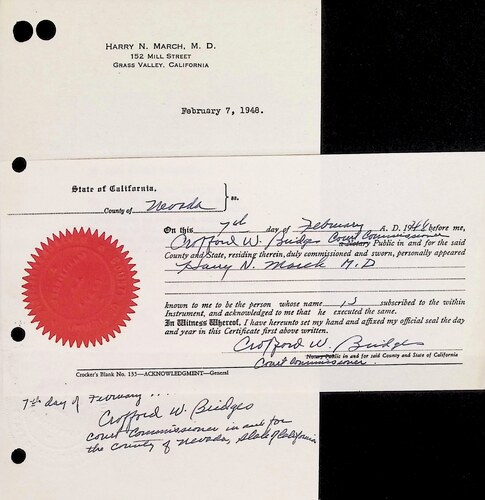 HARRY N. MARCH, M. D.
152 MILL STREET
GRASS VALLEY, CALIFORNIA
February 7, 1948.
State of California,
County of Nevada } ss.
On this 7th day of February A. D. 1948 before me,
Crofford W. Bridges Court Commissioner
a Notary Public in and for the said
County and State, residing therein, duly commissioned and sworn, personally appeared
Harry N. March M.D
known to me to be the person whose name is subscribed to the within
Instrument, and acknowledged to me that he executed the same.
In Witness Whereof, I have hereunto set my hand and affixed my official seal the day
and year in this Certificate first above written.
Crofford W. Bridges
Notary Public in and for said County and State of California
Court Commissioner.
Crocker's Blank No. 135—ACKNOWLEDGMENT—General
7th day of February
Crofford W. Bridges
Court Commissioner in and for
the County of Nevada, State of California